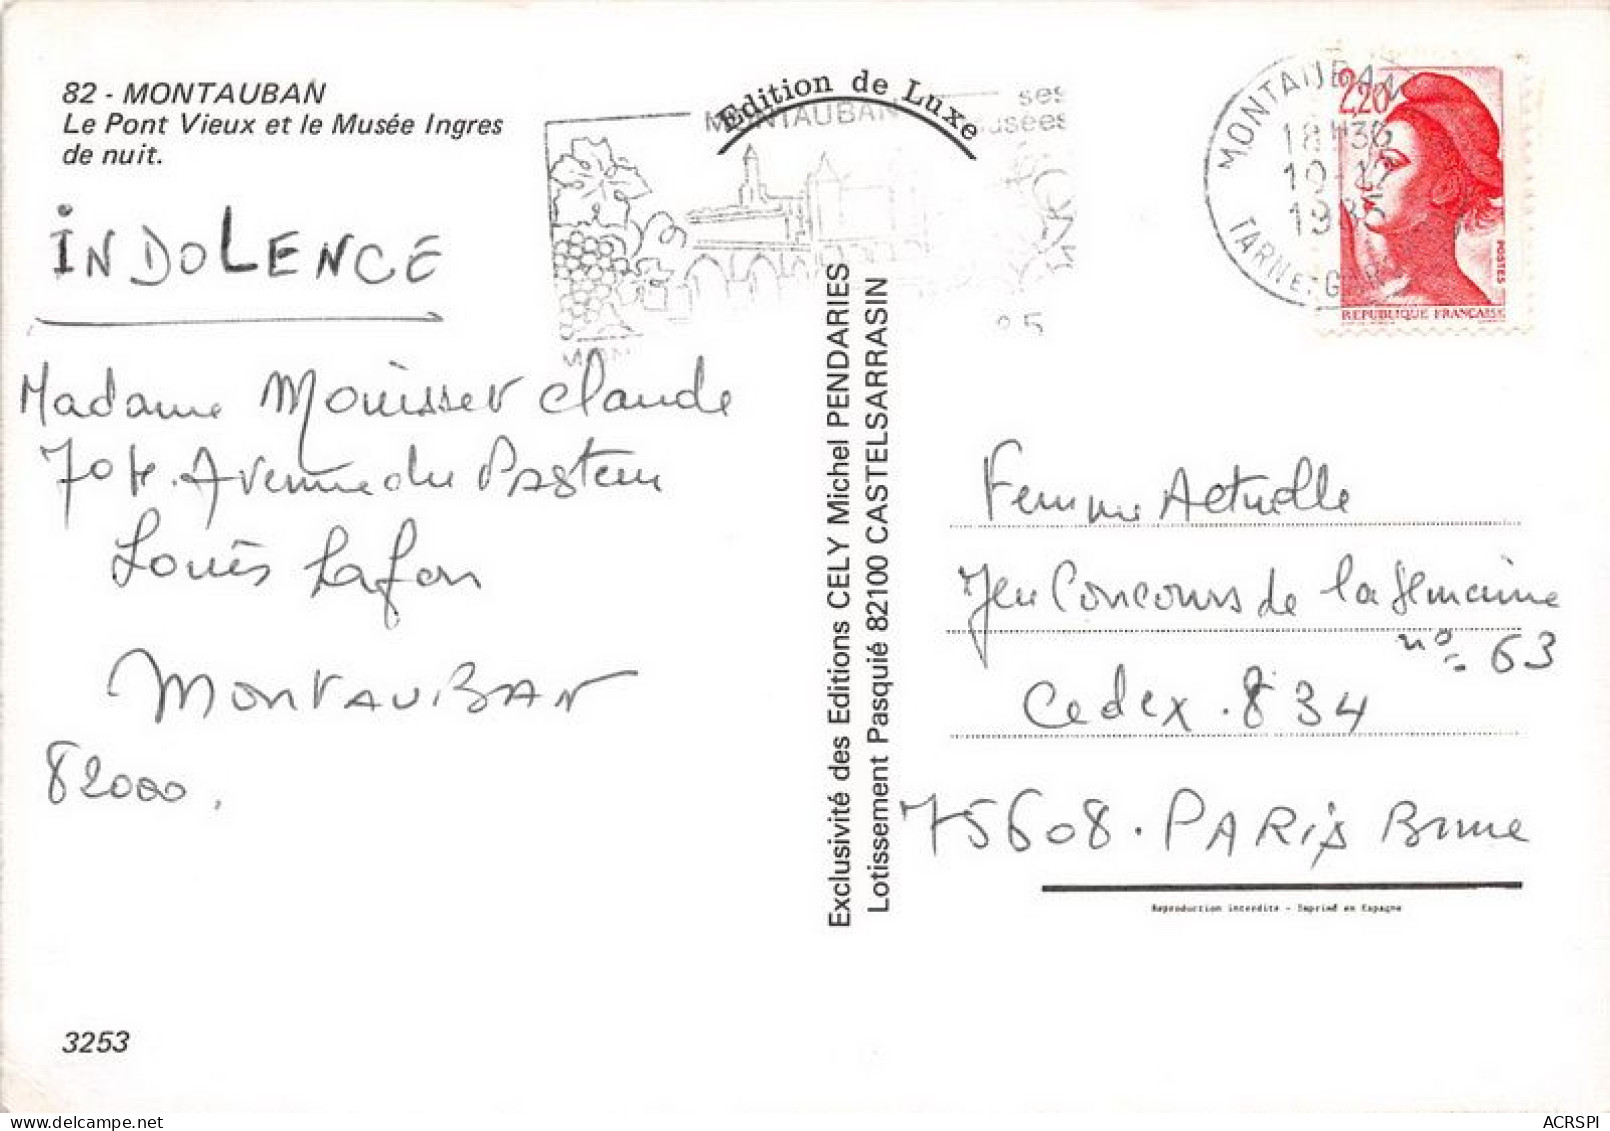 82 - MONTAUBAN
Le Pont Vieux et le Musée Ingres
de nuit.
INDOLENCE
Madame Mouisset Claude
Avenue du Pasteur
Louis Lafon
MONTAUBAN
82000.
3253
Edition de Luxe
MONTAUBAN
ses
musées
Exclusivité des Editions CELY Michel PENDARIES
Lotissement Pasquié 82100 CASTELSARRASIN
MONTAUBAN
18H30
10-12
1985
TARN-ET-GAR
2,20
POSTES
REPUBLIQUE FRANÇAISE
Femme Actuelle
Jeu Concours de la Semaine
n° 63
Cedex .834
75608. PARIS Brune
Reproduction interdite - Imprimé en Espagne
ACRSPI